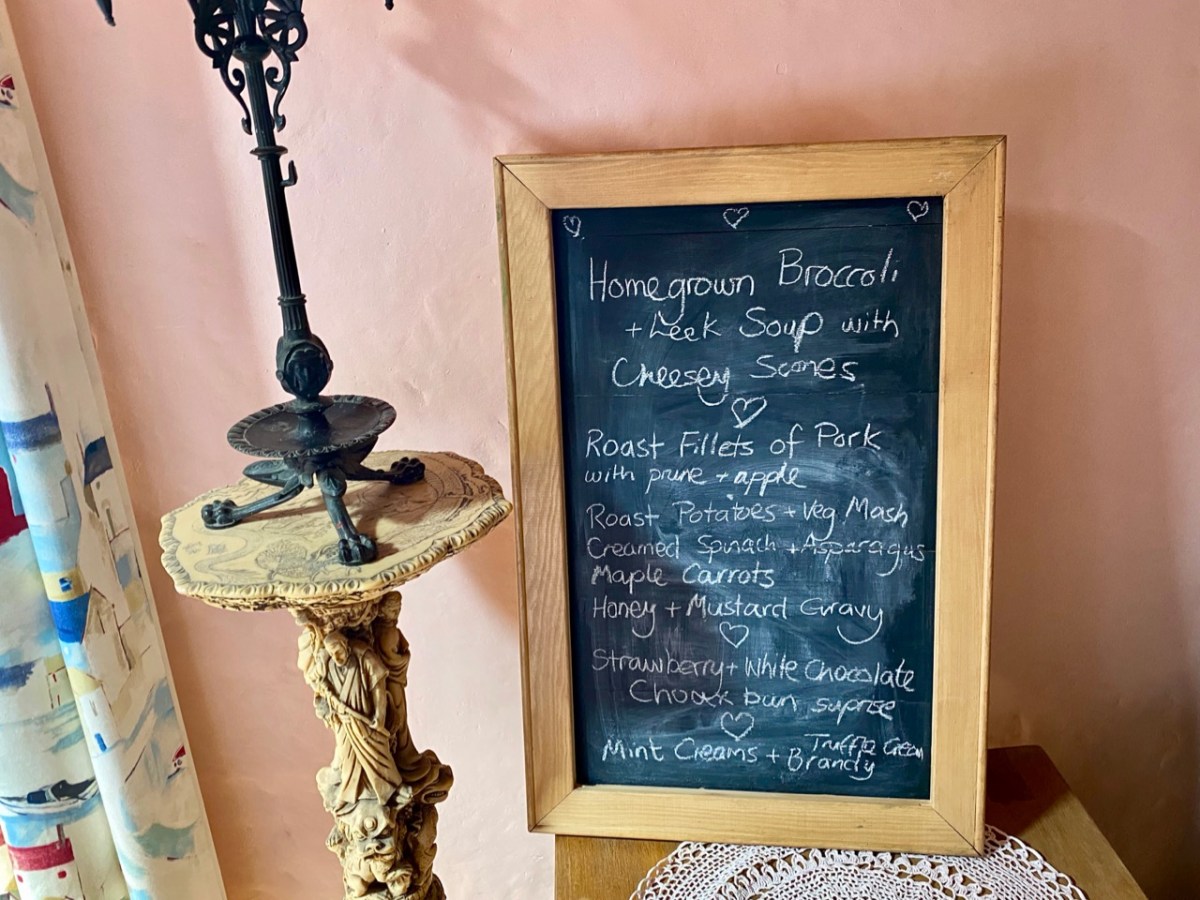 Homegrown Broccoli
+ Leek Soup with
Cheesey Scones
Roast Fillets of Pork
with prune + apple
Roast Potatoes + Veg Mash
Creamed Spinach + Asparagus
Maple Carrots
Honey + Mustard Gravy
Strawberry + White Chocolate
bun suprise
Mint Creams + Brandy Truffle Cream